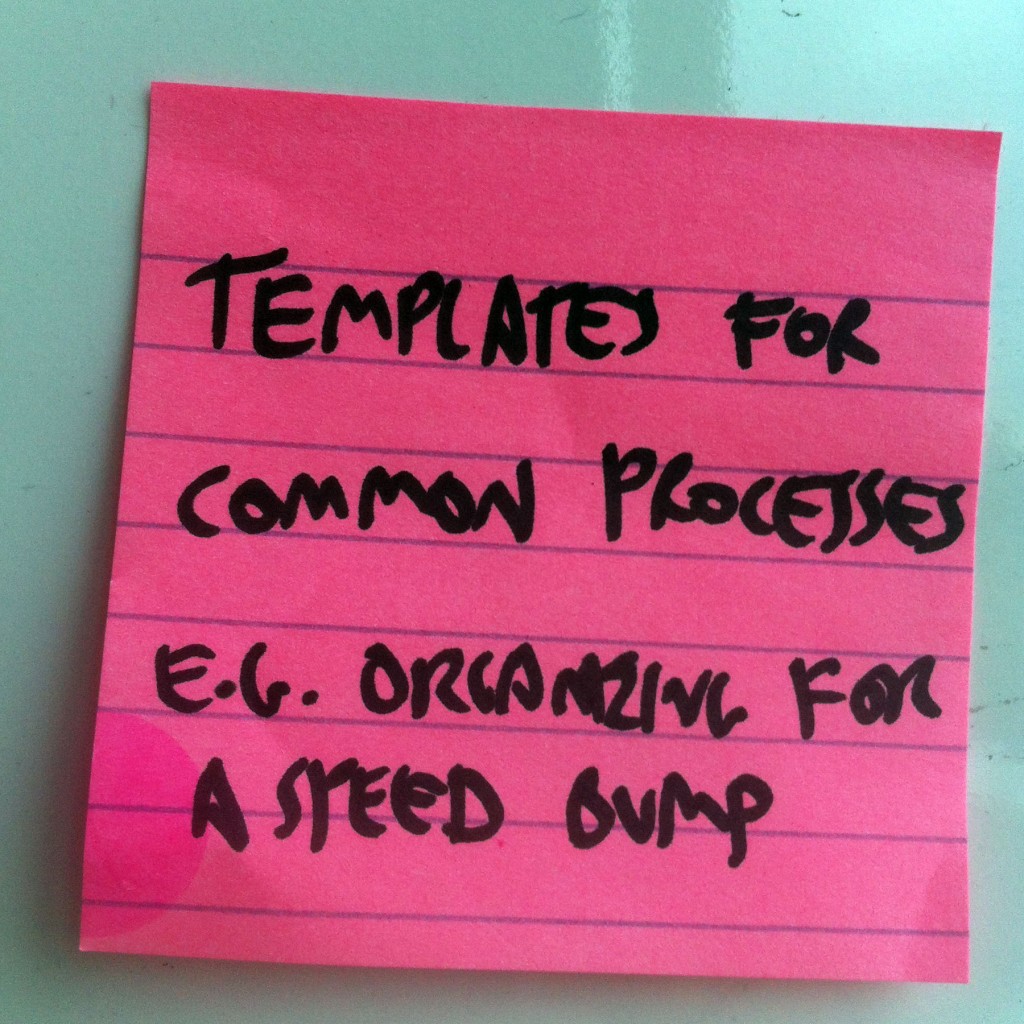 TEMPLATES FOR
COMMON PROCESSES
E.G. ORGANIZING FOR
A SPEED BUMP